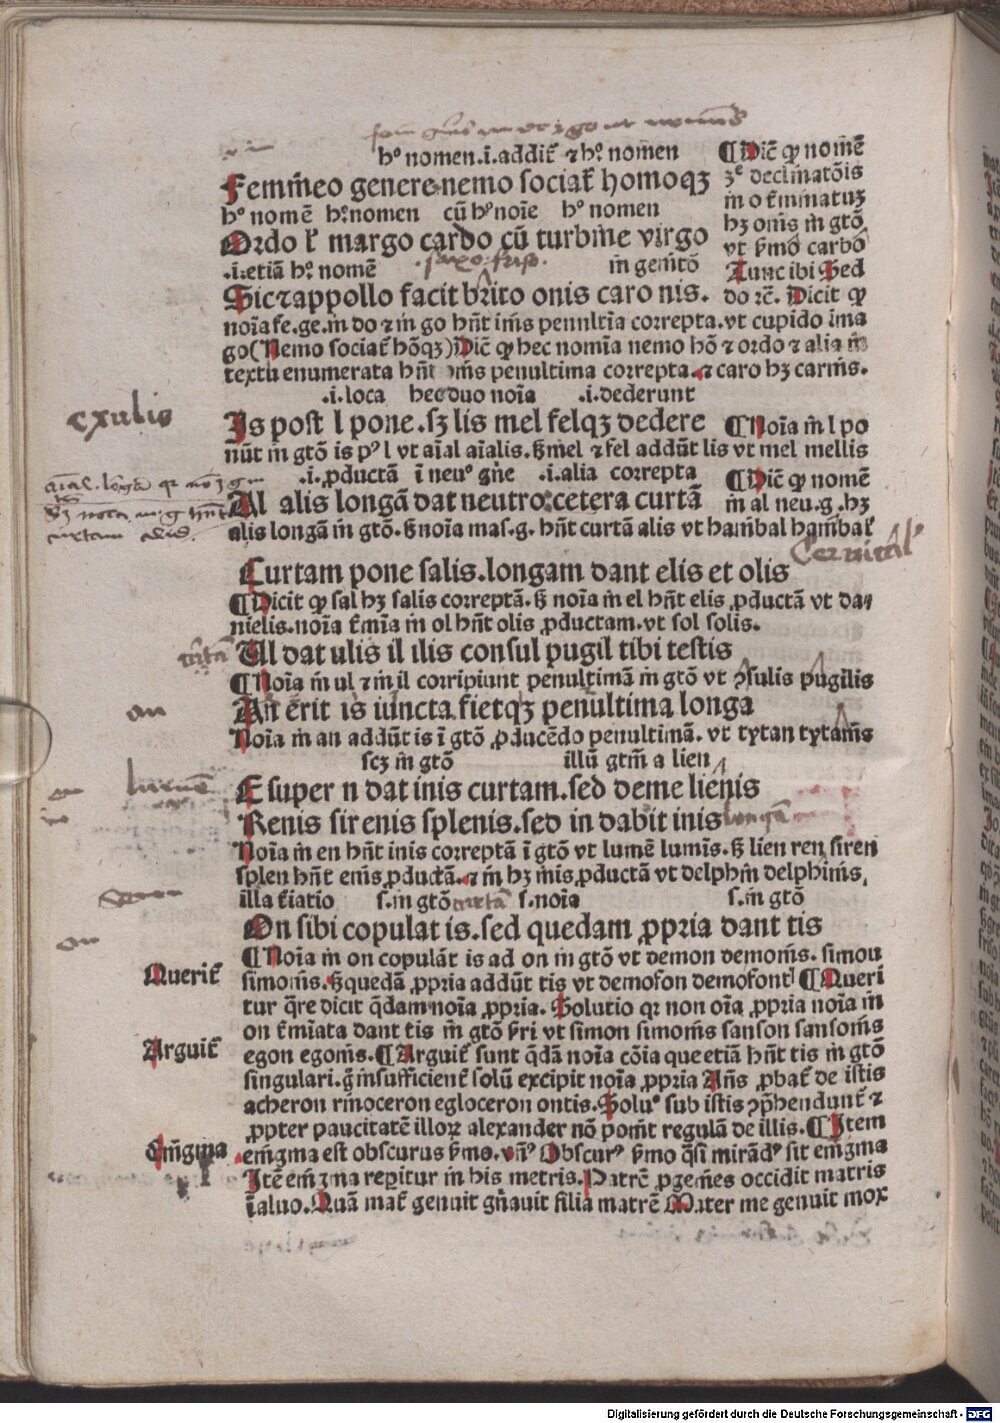 hꝰ nomen.i.addit̄ ⁊ hꝰ nomen
Femineo genere nemo sociat̄ homoqꝫ
hꝰ nomē hꝰ nomen cū hꝰ noīe hꝰ nomen
Ordo t̄ margo cardo cū turbine virgo
.i.etiā hꝰ nomē in genitō
Sic⁊appollo facit brito onis caro nis.
¶Dic̄ ꝙ nomē
ꝫe declinatōis
in o t̄minatuꝫ
hꝫ onis in gtō
vt ẜmo carbo
Tunc ibi Sed
do ⁊c̄. Dicit ꝙ
noīa fe.ge.in do ⁊ in go hn̄t inis penultīa correpta.vt cupido ima
go(Nemo sociat̄ hōqꝫ)Dic̄ ꝙ hec nomīa nemo hō ⁊ ordo ⁊ alia in
textu enumerata hn̄t penultima correpta.⁊ caro hꝫ carnis.
.i.loca hec duo noīa .i.dederunt
Is post l pone.sꝫ lis mel felqꝫ dedere
¶Noīa in l po
nūt in gtō is pꝰ l vt aīal aīalis.ẜ mel ⁊ fel addūt lis vt mel mellis
.i.ꝓductā ī neuꝰ gn̄e .i.alia correpta
Al alis longā dat neutro:cetera curtā
¶Dic̄ ꝙ nomē
in al neu.g.hꝫ
alis longā in gtō.ẜ noīa mas.g. hn̄t curtā alis vt hanibal hanibal̄
Curtam pone salis.longam dant elis et olis
¶Dicit ꝙ sal hꝫ salis correptā.ẜ noīa in el hn̄t elis ꝓductā vt da⸗
nielis.noīa t̄mīa in ol hn̄t olis ꝓductam.vt sol solis.
Ul dat ulis il ilis consul pugil tibi testis
¶Noīa in ul ⁊ in il corripiunt penultimā in gtō vt ꝯsulis pugilis
An̄ erit is iuncta fietqꝫ penultima longa
Noīa in an addūt is ī gtō ꝓducēdo penultimā. vt tytan tytanis
scꝫ in gtō illū gtm̄ a lien
E super n dat inis curtam.sed deme lienis
Renis sirenis splenis.sed in dabit inis
Noīa in en hn̄t inis correptā ī gtō vt lumē luminis.ẜ lien ren siren
splen hn̄t enis ꝓductā.⁊ in hꝫ inis ꝓductā vt delphin delphinis,
illa t̄iatio s.in gtō s.noīa s.in gtō
On sibi copulat is.sed quedam ꝓpria dant tis
¶Noīa in on copulāt is ad on in gtō vt demon demonis. simon
simonis.ẜ quedā ꝓpria addūt tis vt demofon demofontꝭ ¶Queri
Querit̄
tur q̄re dicit q̄dam noīa ꝓpria. Solutio qꝛ non oīa ꝓpria noīa in
on t̄mīata dant tis in gtō ẜri vt simon simonis sanson sansonis
Arguit̄
egon egonis.¶Arguit̄ sunt q̄dā noīa cōia que etiā hn̄t tis in gtō
singulari.g̊ insufficient̄ solū excipit noīa ꝓpria An̄s ꝓbat̄ de istis
acheron rinoceron egloceron ontis.Soluꝰ sub istis ꝯp̄hendunt̄ ⁊
ꝓpter paucitatē illoꝝ alexander nō ponit regulā de illis.¶Item
Enigma
enigma est obscurus ẜmo. vn̄ꝰ Obscurꝰ ẜmo q̄si mirādꝰ sit enigma
Itē enigma repitur in his metris.Patrē ꝓgenies occidit matris
ī aluo.Quā mat̄ genuit gn̄auit filia matrē Mater me genuit mox
exulis
Digitalisierung gefördert durch die Deutsche Forschungsgemeinschaft - DFG